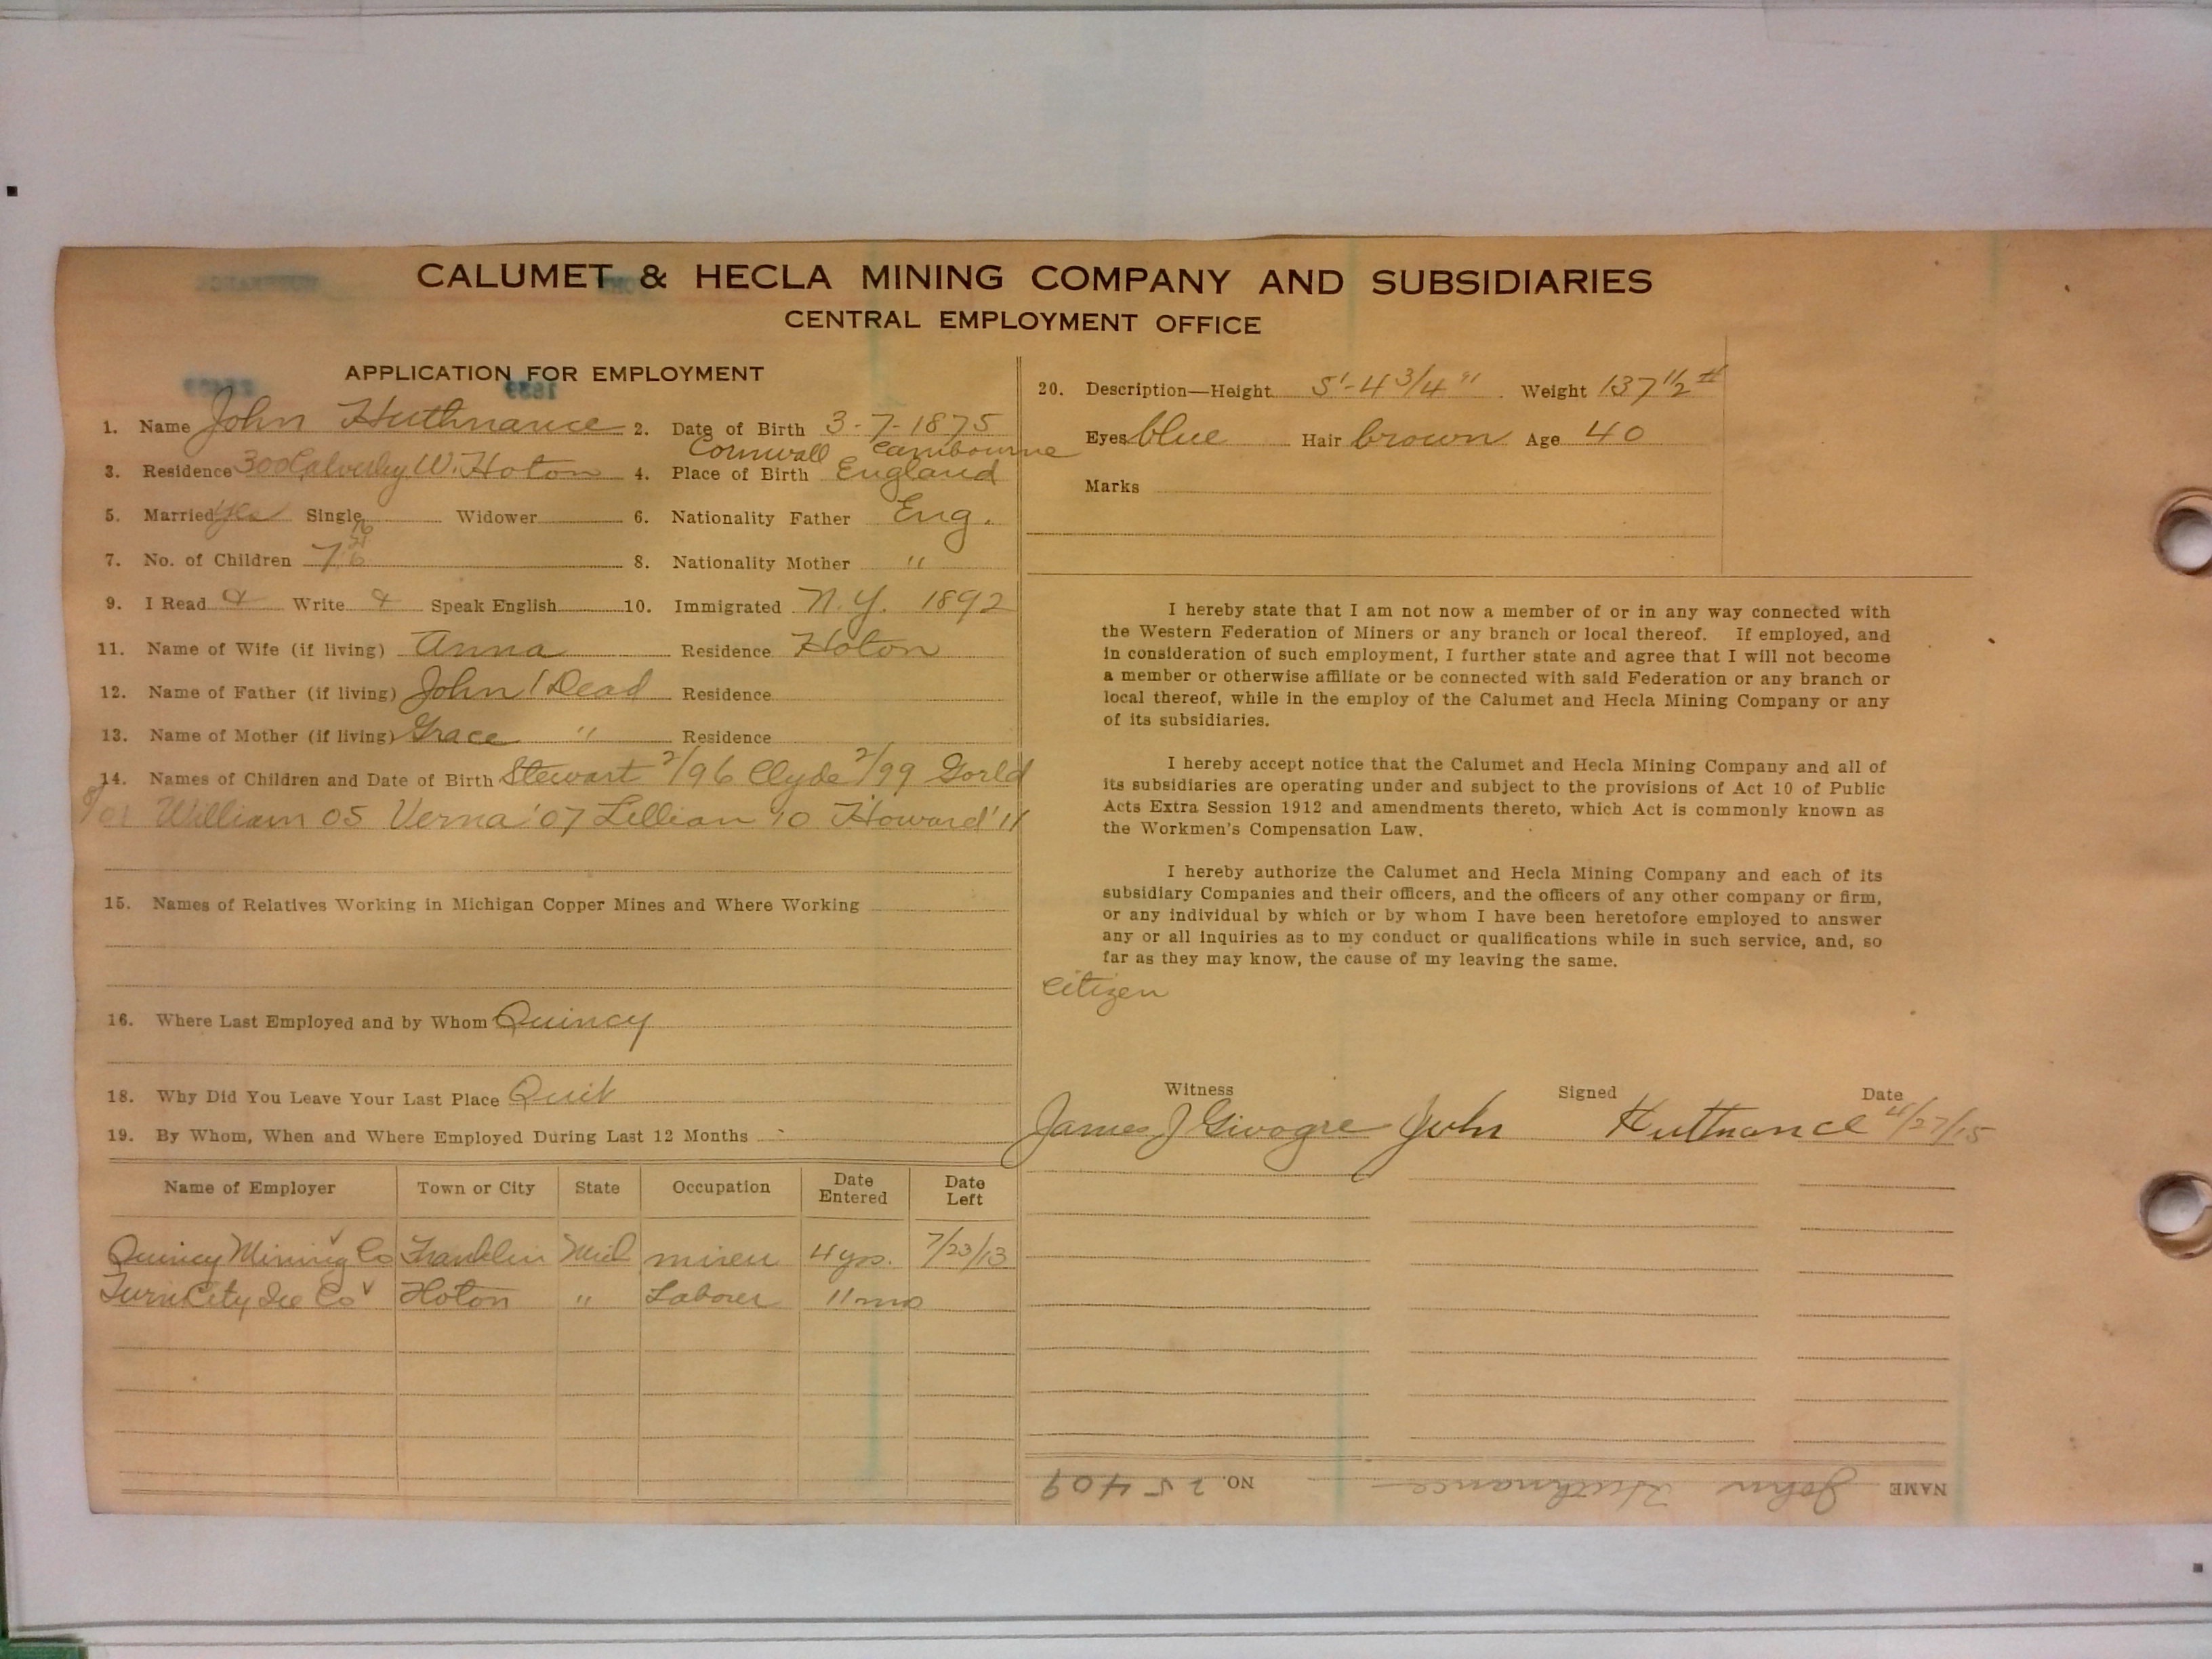 CALUMET & HECLA MINING COMPANY AND SUBSIDIARIES
CENTRAL EMPLOYMENT OFFICE
APPLICATION FOR EMPLOYMENT
1. Name John Huthnance 2. Date of Birth 3-7-1875
Cornwall Cambourne
3. Residence 300 Calverley W. Hoton 4. Place of Birth England
5. Married yes Single Widower 6. Nationality Father Eng.
7. No. of Children 7 8. Nationality Mother "
9. I Read & Write & Speak English 10. Immigrated N.Y. 1892
11. Name of Wife (if living) Anna Residence Hoton
12. Name of Father (if living) John / Dead Residence
13. Name of Mother (if living) Grace " Residence
14. Names of Children and Date of Birth Stewart 2/96 Clyde 2/99 Gorld
/01 William 05 Verna '07 Lillian 10 Howard '11
15. Names of Relatives Working in Michigan Copper Mines and Where Working
16. Where Last Employed and by Whom Quincy
18. Why Did You Leave Your Last Place Quit
19. By Whom, When and Where Employed During Last 12 Months
Name of Employer Town or City State Occupation Date Entered Date Left
Quincy Mining Co Franklin Mich miner 4 yrs. 7/23/13
City Ice Co Hoton " Laborer 11 mo
20. Description—Height 5'-4 3/4" Weight 137 1/2 #
Eyes blue Hair brown Age 40
Marks
I hereby state that I am not now a member of or in any way connected with
the Western Federation of Miners or any branch or local thereof. If employed, and
in consideration of such employment, I further state and agree that I will not become
a member or otherwise affiliate or be connected with said Federation or any branch or
local thereof, while in the employ of the Calumet and Hecla Mining Company or any
of its subsidiaries.
I hereby accept notice that the Calumet and Hecla Mining Company and all of
its subsidiaries are operating under and subject to the provisions of Act 10 of Public
Acts Extra Session 1912 and amendments thereto, which Act is commonly known as
the Workmen's Compensation Law.
I hereby authorize the Calumet and Hecla Mining Company and each of its
subsidiary Companies and their officers, and the officers of any other company or firm,
or any individual by which or by whom I have been heretofore employed to answer
any or all inquiries as to my conduct or qualifications while in such service, and, so
far as they may know, the cause of my leaving the same.
Citizen
Witness Signed Date
James J Givogre John Huthnance 4/27/15
NAME John Huthnance NO. 25409